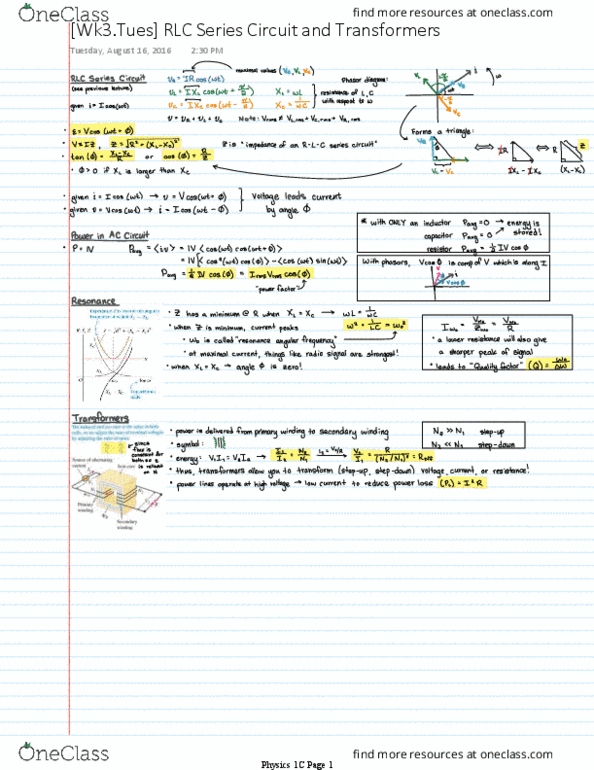 OneClass
find more resources at oneclass.com
[Wk3.Tues] RLC Series Circuit and Transformers
Tuesday, August 16, 2016 2:30 PM
RLC Series Circuit
(see previous lecture)
given i = I cos(ωt)
maximal values (V_R, V_L, V_C)
v_R = IR cos(ωt)
v_L = IX_L cos(ωt + π/2) X_L = ωL
v_C = IX_C cos(ωt - π/2) X_C = 1/ωC
resistance of L, C with respect to ω
v = v_R + v_L + v_C Note: V_rms ≠ V_L,rms + V_C,rms + V_R,rms
Phasor diagram:
• ε = V cos(ωt + φ)
• V = IZ, Z = √(R² + (X_L - X_C)²) Z is "impedance of an R-L-C series circuit"
• tan(φ) = (X_L - X_C)/R or cos(φ) = R/Z
• φ > 0 if X_L is larger than X_C
Forms a triangle:
V_R
V_L - V_C
IR
IX_L - IX_C
R
Z
(X_L - X_C)
• given i = I cos(ωt) → v = V cos(ωt + φ)
• given v = V cos(ωt) → i = I cos(ωt - φ)
Voltage leads current by angle φ
Power in AC Circuit
• P = IV P_avg = <iv> = IV <cos(ωt) cos(ωt + φ)>
P_avg = ½ IV cos(φ) = I_rms V_rms cos(φ)
"power factor"
* with ONLY an inductor P_avg = 0 → energy is stored!
capacitor P_avg = 0
resistor P_avg = ½ IV cos φ
With phasors, V cos φ is comp of V which is along I
Resonance
• Z has a minimum @ R when X_L = X_C → ωL = 1/ωC
• when Z is minimum, current peaks ω² = 1/LC = ω_0²
• ω_0 is called "resonance angular frequency"
• at maximal current, things like radio signal are strongest!
• when X_L = X_C → angle φ is zero!
• a lower resistance will also give a sharper peak of signal
• leads to "Quality factor" (Q) = ω_0/Δω
Transformers
• power is delivered from primary winding to secondary winding
• symbol:
N_2 >> N_1 step-up
N_2 << N_1 step-down
• energy: V_1I_1 = V_2I_2 → I_1/I_2 = N_2/N_1
• thus, transformers allow you to transform (step-up, step-down) voltage, current, or resistance!
• power lines operate at high voltage → low current to reduce power loss (P_L) = I²R
Source of alternating current
Primary winding
Secondary winding
OneClass
Physics 1C Page 1
find more resources at oneclass.com